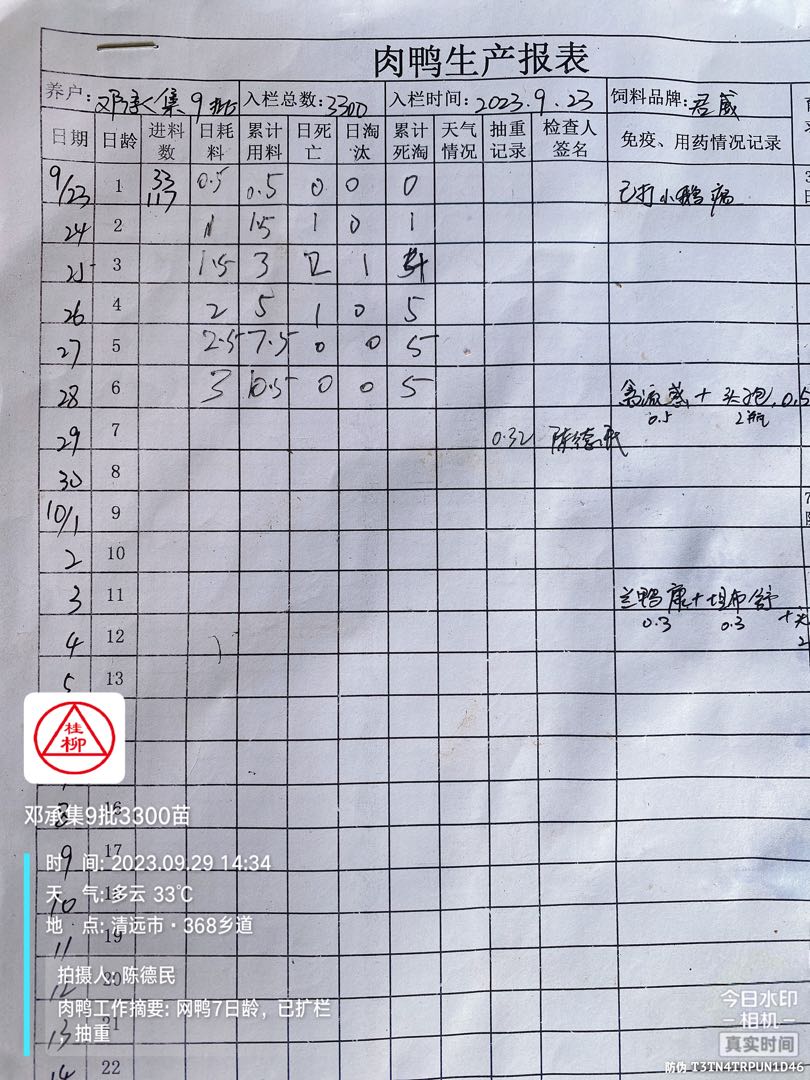 肉鸭生产报表
养户: 邓承集 9批 入栏总数: 3300 入栏时间: 2023.9.23 饲料品牌: 君威
日期 日龄 进料数 日耗料 累计用料 日死亡 日淘汰 累计死淘 天气情况 抽重记录 检查人签名 免疫、用药情况记录
9/23 1 33 117 0.5 0.5 0 0 0 已打小鹅病
24 2 1 1.5 1 0 1
25 3 1.5 3 2 1 4
26 4 2 5 1 0 5
27 5 2.5 7.5 0 0 5
28 6 3 10.5 0 0 5 禽流感 + 头孢, 0.5
0.5 2瓶
29 7 0.32 陈德民
30 8
10/1 9
2 10
3 11 兰鸭康+坦布舒
0.3 0.3 +头
4 12
5 13
桂柳
16
邓承集9批3300苗
9 17
时 间: 2023.09.29 14:34
天 气: 多云 33℃
10 18
地 点: 清远市·368乡道
11 19
拍摄人: 陈德民
12 20
肉鸭工作摘要: 网鸭7日龄，已扩栏
，抽重
13 21
14 22
今日水印
相机
真实时间
防伪 T3TN4TRPUN1D46